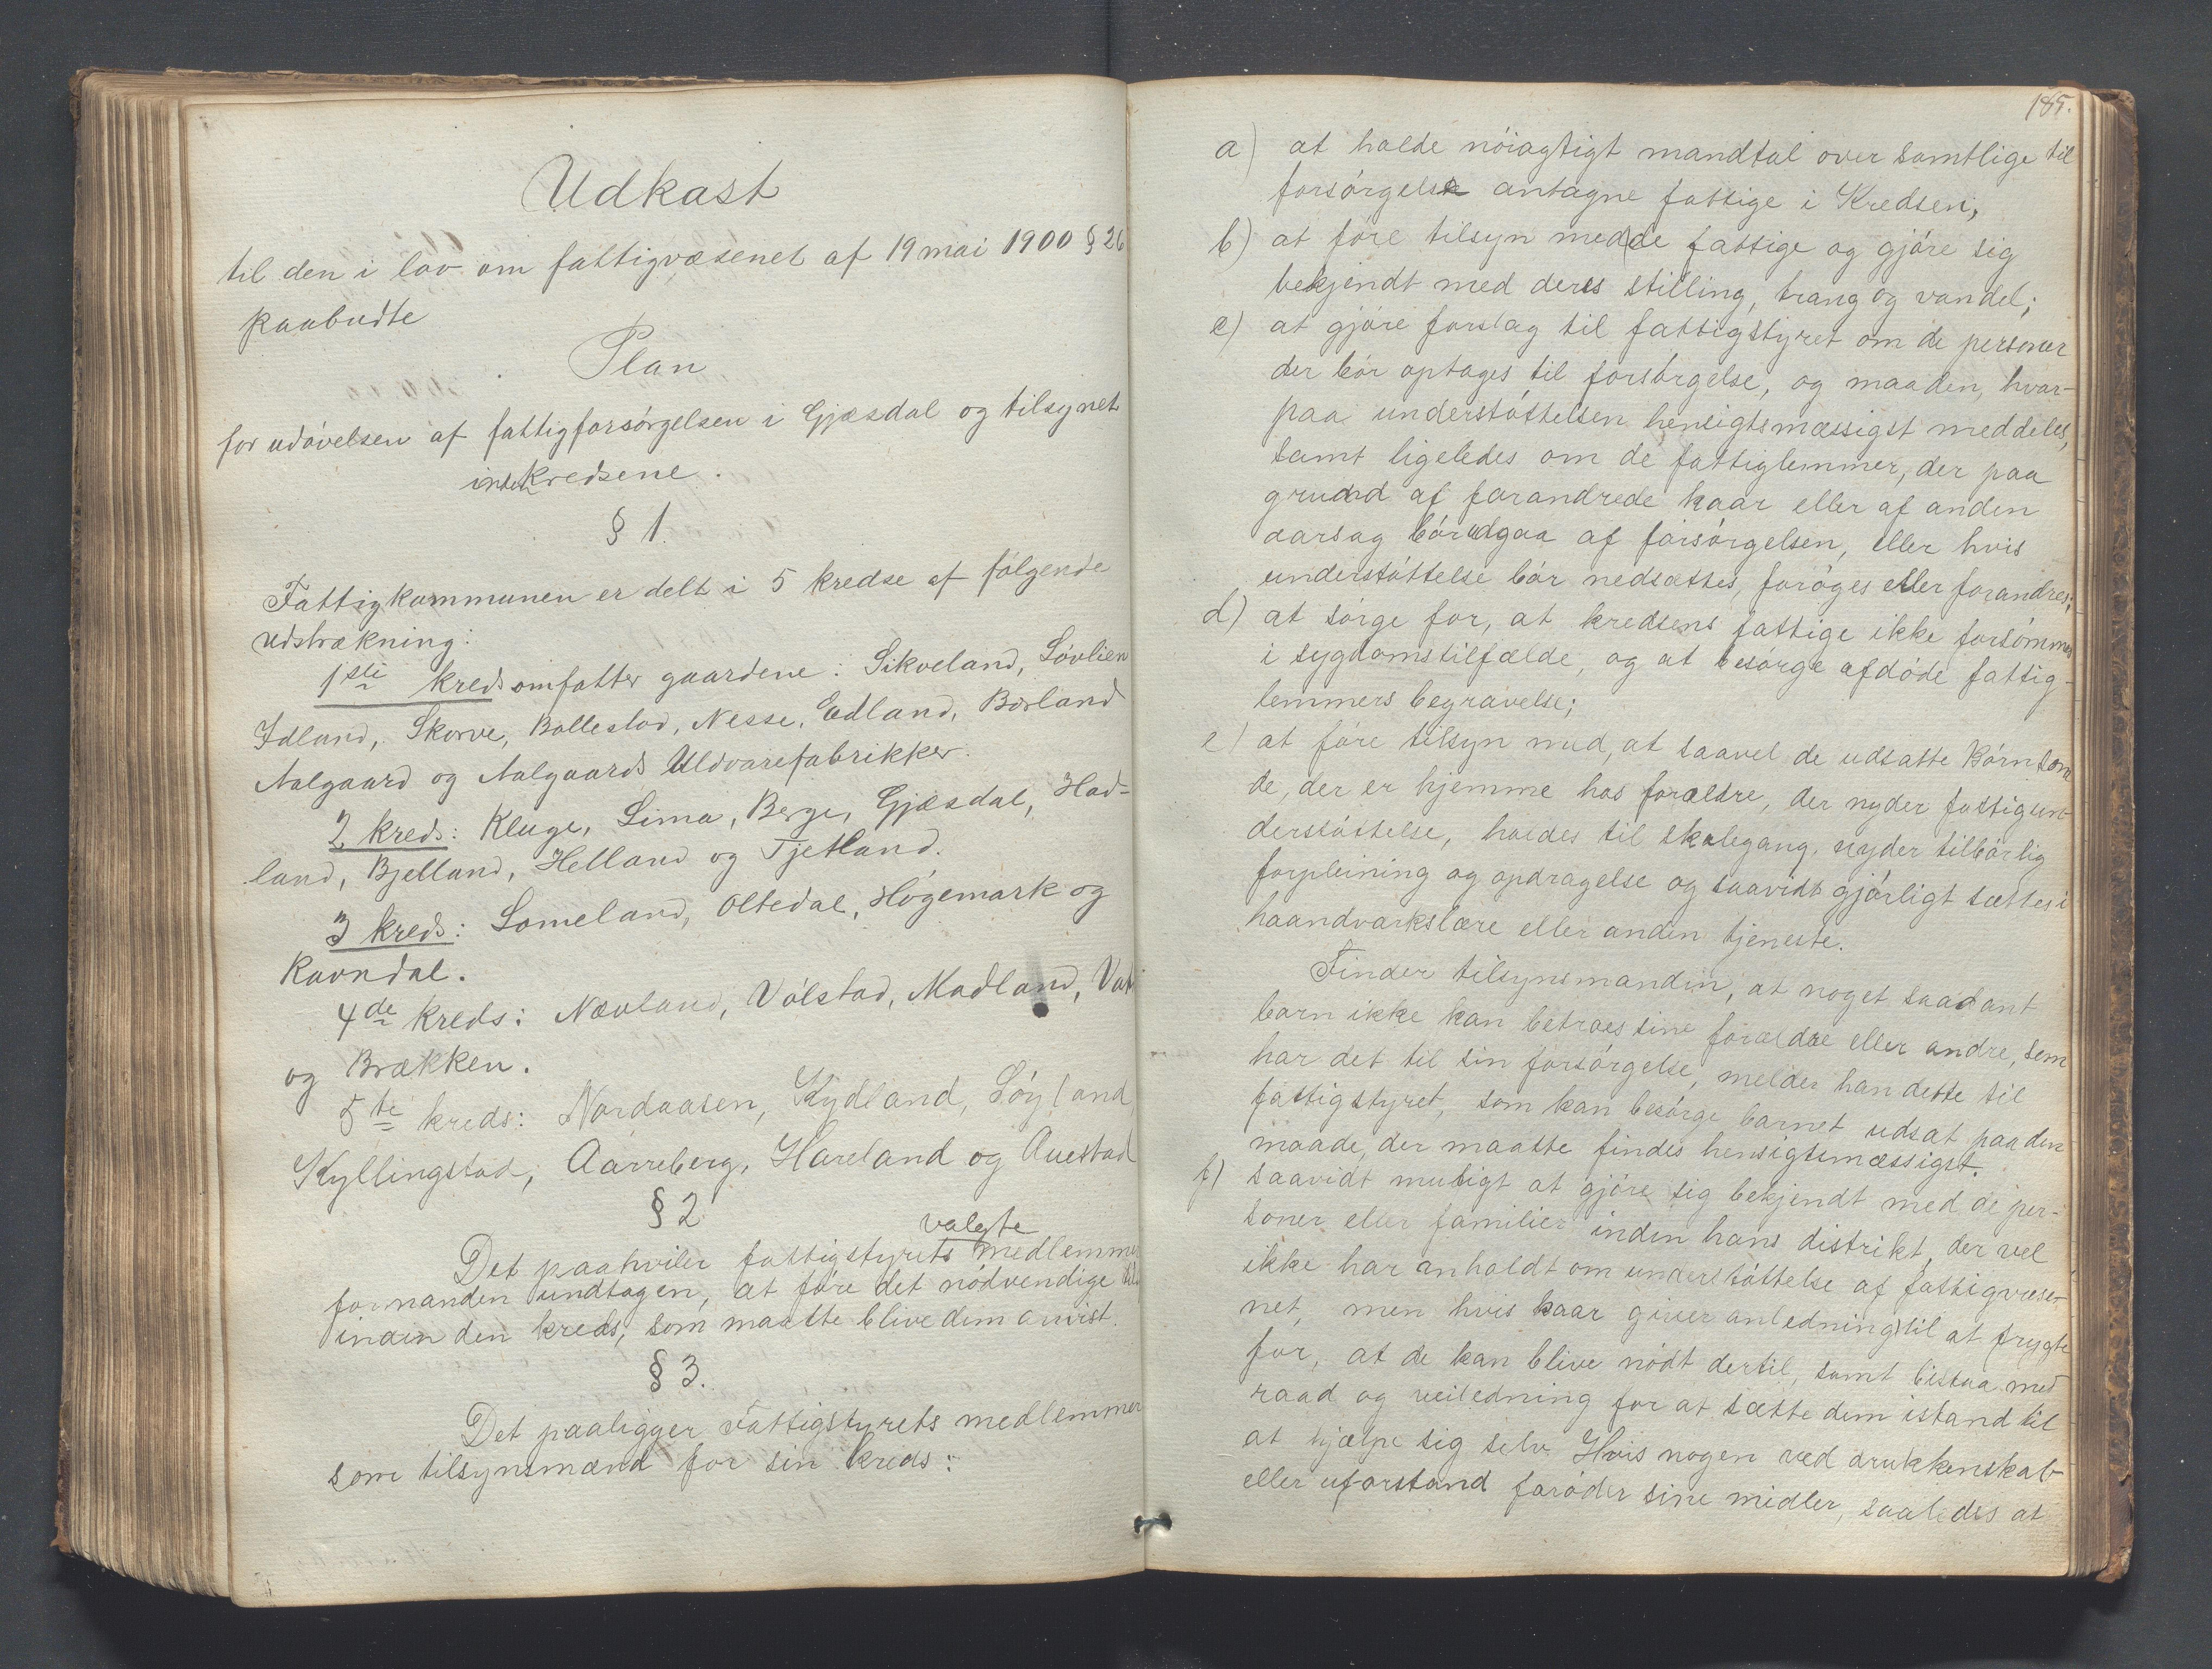 Udkast
til den i lov om fattigvæsenet af 19 mai 1900 § 26
paabudte
Plan
for udøvelsen af fattigforsørgelsen i Gjæsdal og tilsynet
inden kredsene.
§ 1.
Fattigkommunen er delt i 5 kredse af følgende
udstrækning:
1ste kreds omfatter gaardene: Sikveland, Løvlien
Idland, Skorve, Bollestad, Nesse, Edland, Borland
Aalgaard og Aalgaards Uldvarefabrikker.
2 kreds: Kluge, Lima, Berge, Gjæsdal, Had-
land, Bjelland, Helland og Tjetland.
3 kreds: Lomeland, Oltedal, Høgemark og
Ravndal.
4de kreds: Nævland, Vølstad, Madland,
og Brækken.
5te kreds: Nordaasen, Kydland, Søyland
Kyllingstad, Aarreberg, Hareland og Auestad
§ 2
valgte
Det paahviler fattigstyrets medlemmer
formanden undtagen, at føre det nødvendige
inden den kreds, som maatte blive dem anvist.
§ 3.
Det paaligger Fattigstyrets medlemmer
som tilsynsmænd for sin kreds:
185.
a) at holde nøiagtigt mandtal over samtlige til
forsørgelse antagne fattige i Kredsen,
b) at føre tilsyn med de fattige og gjøre sig
bekjendt med deres stilling, trang og vandel;
c) at gjøre forslag til fattigstyret om de personer
der bør optages til forsørgelse, og maaden, hvor-
paa understøttelsen hensigtsmæssigst meddeles,
samt ligeledes om de fattiglemmer, der paa
grund af forandrede kaar eller af anden
aarsag bør udgaa af forsørgelsen, eller hvis
understøttelse bør nedsættes, forøges eller forandres;
d) at sørge for, at kredsens fattige ikke forsømmes
i sygdomstilfælde, og at besørge afdøde fattig-
lemmers begravelse;
e) at føre tilsyn med, at saavel de udsatte børn som
de, der er hjemme hos forældre, der nyder fattigun-
derstøttelse, holdes til skolegang, nyder tilbørlig
forpleining og opdragelse og saavidt gjørligt sættes i
haandværkslære eller anden tjeneste.
Finder tilsynsmanden, at noget saadant
barn ikke kan betroes sine forældre eller andre, som
har det til sin forsørgelse, melder han dette til
fattigstyret, som kan besørge barnet udsat paa den
maade, der maatte findes hensigtsmæssigst.
f) saavidt muligt at gjøre sig bekjendt med de per-
soner eller familier inden hans distrikt, der vel
ikke har anholdt om understøttelse af fattigvæse-
net, men hvis kaar giver anledning til at frygte
for, at de kan blive nødt dertil, samt bistaa med
raad og veiledning for at sætte dem istand til
at hjælpe sig selv. Hvis nogen ved drukkenskab
eller uforstand forøder sine midler, saaledes at